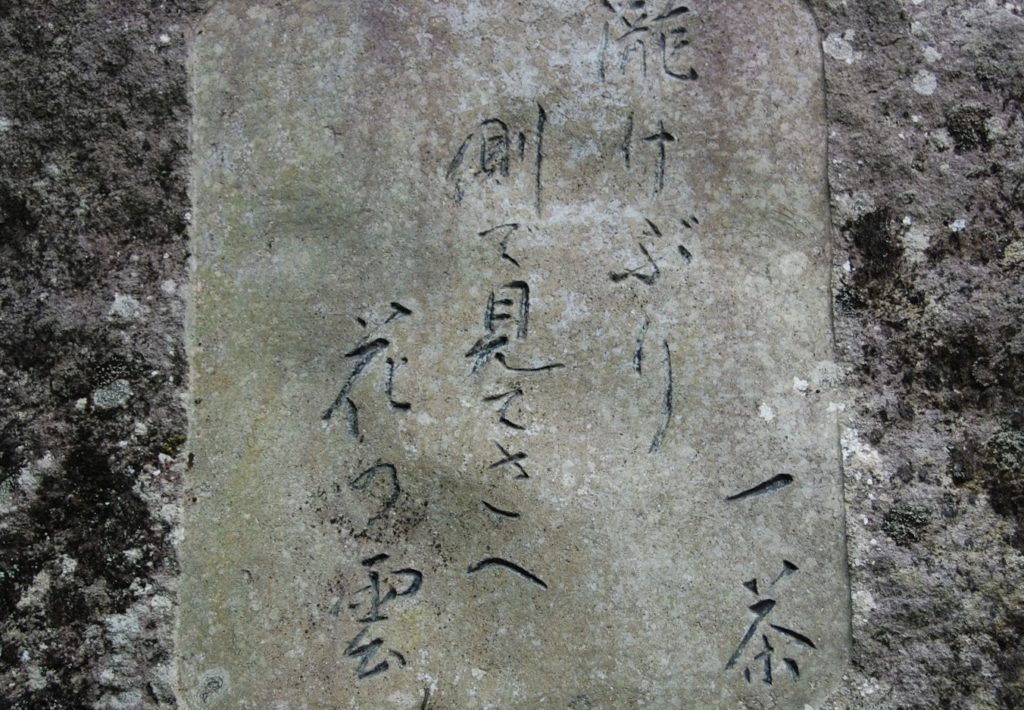 一茶
瀧けぶり
側で見てさへ
花の雲